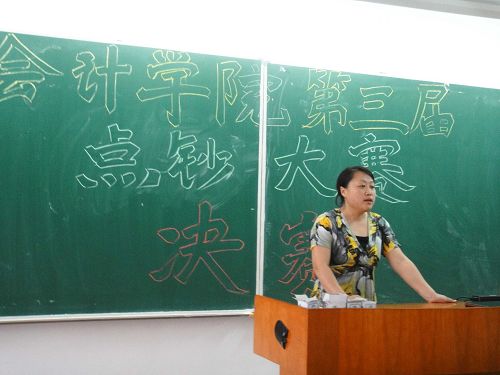 会计学院第三届
点钞大赛
决赛